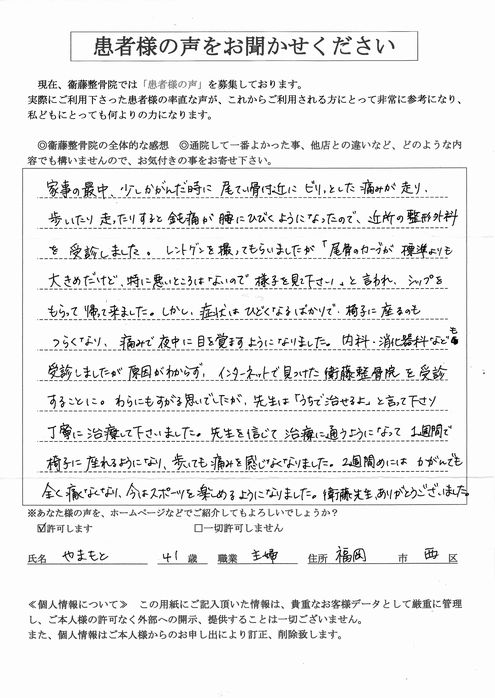 患者様の声をお聞かせください
現在、衞藤整骨院では「患者様の声」を募集しております。
実際にご利用下さった患者様の率直な声が、これからご利用される方にとって非常に参考になり、
私どもにとっても何よりの力になります。
◎衞藤整骨院の全体的な感想　◎通院して一番よかった事、他店との違いなど、どのような内
容でも構いませんので、お気付きの事をお寄せ下さい。
家事の最中、少しかがんだ時に 尾てい骨付近に ビリッとした 痛みが 走り、
歩いたり 走ったりすると 鈍痛が 腰にひびくようになったので、近所の 整形外科
を 受診しました。 レントゲンを 撮ってもらいましたが 「尾骨のカーブが 標準よりも
大きめだけど、特に悪いところはないので 様子を見て下さい。」と 言われ、シップを
もらって 帰って来ました。しかし、症状は ひどくなるばかりで、椅子に 座るのも
つらくなり、 痛みで 夜中に 目を覚ますようになりました。 内科・消化器科なども
受診しましたが 原因がわからず、 インターネットで 見つけた 衞藤整骨院 を 受診
することに。 わらにもすがる思いでしたが、先生は「うちで治せるよ」と 言って下さり
丁寧に 治療して下さいました。 先生を信じて 治療に通うようになって 1週間で
椅子に 座れるようになり、歩いても 痛みを 感じなくなりました。 2週間めには かがんでも
全く痛くなくなり、今はスポーツを 楽しめるようになりました。衞藤先生、ありがとうございました。
※あなた様の声を、ホームページなどでご紹介してもよろしいでしょうか？
☑許可します　□一切許可しません
氏名 やまもと 41 歳 職業 主婦 住所 福岡 市 西 区
≪個人情報について≫　この用紙にご記入頂いた情報は、貴重なお客様データとして厳重に管理
し、ご本人様の許可なく外部への開示、提供することは一切ございません。
また、個人情報はご本人様からのお申し出により訂正、削除致します。